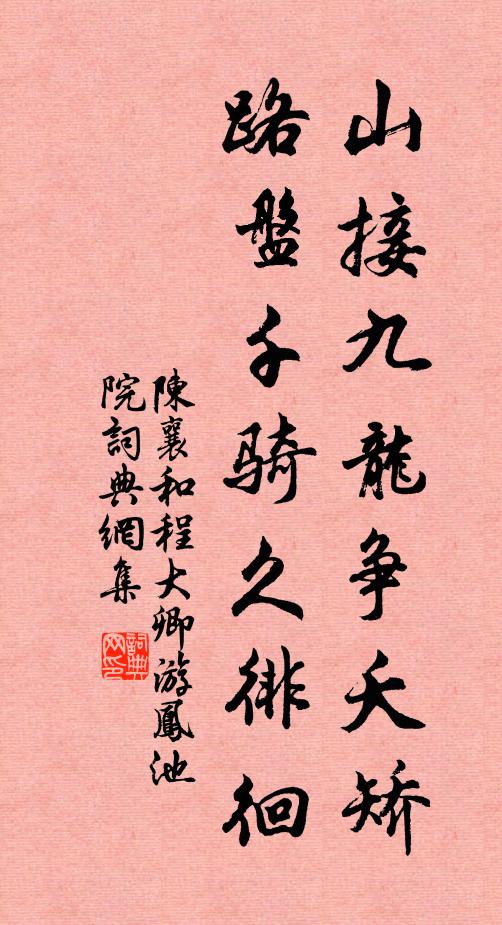 山接九龍争夭矫
路盤千騎久徘徊
陳襄和程大卿游鳳池
院詞典網集
詞典网印